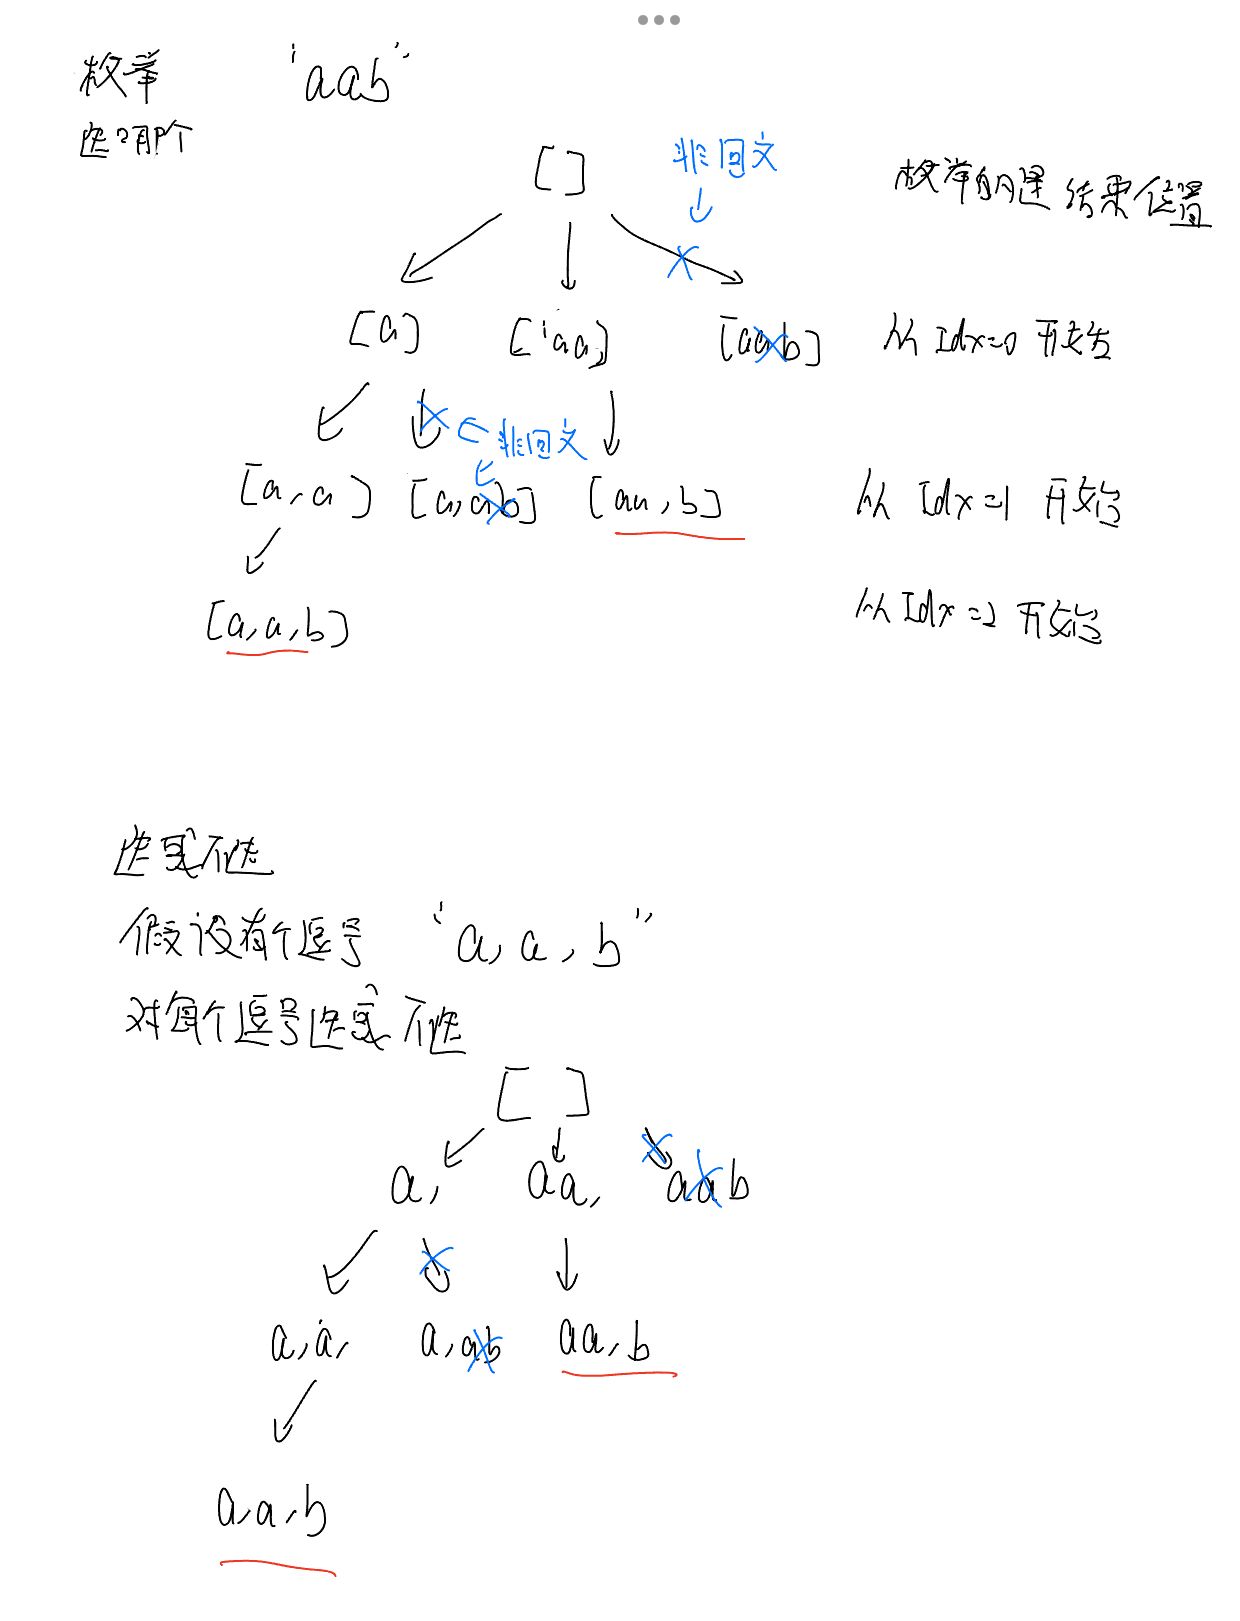 枚举 "aab"
选哪个
[ ] 非回文
枚举的是 结果位置
[a] ["aa] [aab] 从 Idx=0 开始
非回文
[a, a] [a, ab] [aa, b] 从 Idx=1 开始
[a, a, b] 从 Idx=2 开始
选或不选
假设有个逗号 "a, a, b"
对每个逗号选或不选
[ ]
a, aa, aab
a, a, a, ab aa, b
a, a, b